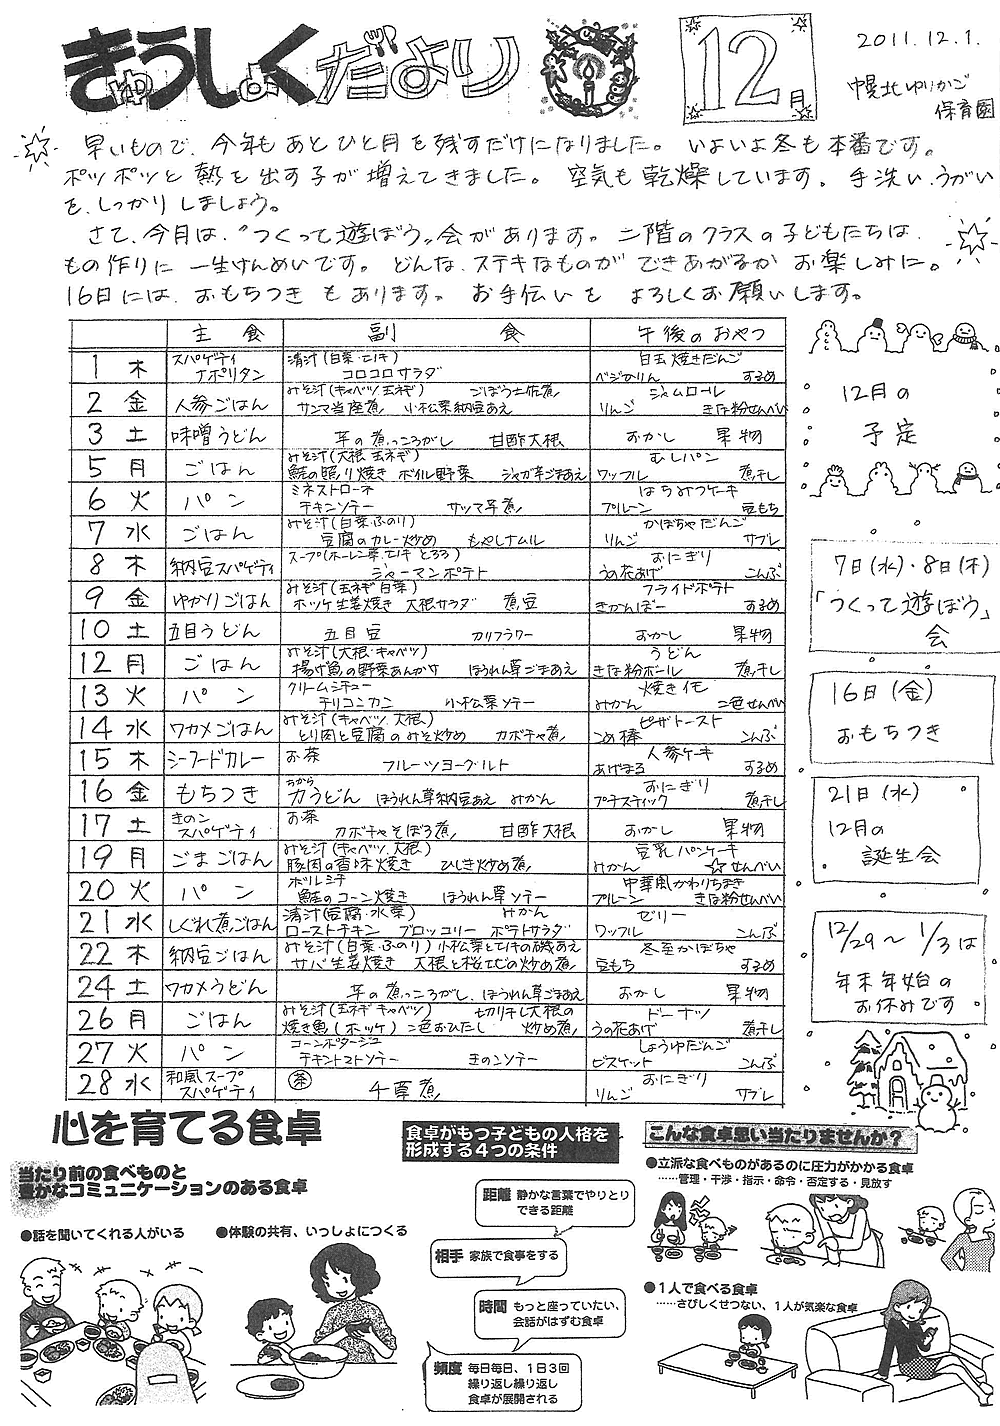 きゅうしょくだより
12月
2011.12.1.
幌北ゆりかご
保育園
早いもので、今年もあとひと月を残すだけになりました。いよいよ冬も本番です。
ポツポツと熱を出す子が増えてきました。空気も乾燥しています。手洗い、うがい
を、しっかりしましょう。
さて、今月は、“つくって遊ぼう”会があります。二階のクラスの子どもたちは、
もの作りに一生けんめいです。どんな、ステキなものができあがるか お楽しみに。
16日には、おもちつきもあります。お手伝いをよろしくお願いします。
主食 副食 午後のおやつ
1 木 スパゲティナポリタン 清汁(白菜・エノキ) コロコロサラダ 白玉焼きだんご ベジかりん するめ
2 金 人参ごはん みそ汁(キャベツ、玉ネギ) ごぼう土佐煮 サンマ当座煮 小松菜納豆あえ ジャムロール りんご きな粉せんべい
3 土 味噌うどん 芋の煮っころがし 甘酢大根 おかし 果物
5 月 ごはん みそ汁(大根、玉ネギ) 鮭の照り焼き ボイル野菜 ジャガ芋ごまあえ むしパン ワッフル 煮干し
6 火 パン ミネストローネ チキンソテー サツマ芋煮 はちみつケーキ プルーン 豆もち
7 水 ごはん みそ汁(白菜・ふのり) 豆腐のカレー炒め もやしナムル かぼちゃだんご りんご サブレ
8 木 納豆スパゲティ スープ(ホーレン草 エノキ とろろ) ジャーマンポテト おにぎり うの花あげ こんぶ
9 金 ゆかりごはん みそ汁(玉ネギ 白菜) ホッケ生姜焼き 大根サラダ 煮豆 フライドポテト きかんぼー するめ
10 土 五目うどん 五目豆 カリフラワー おかし 果物
12 月 ごはん みそ汁(大根・キャベツ) 揚げ魚の野菜あんかけ ほうれん草ごまあえ うどん きな粉ボール 煮干し
13 火 パン クリームシチュー チリコンカン 小松菜ソテー 焼きイモ みかん 二色せんべい
14 水 ワカメごはん みそ汁(キャベツ、大根) とり肉と豆腐のみそ炒め カボチャ煮 ピザトースト こめ棒 こんぶ
15 木 シーフードカレー お茶 フルーツヨーグルト 人参ケーキ あげまる するめ
16 金 もちつき 力うどん ほうれん草納豆あえ みかん おにぎり プチスティック 煮干し
17 土 きのこスパゲティ お茶 カボチャそぼろ煮 甘酢大根 おかし 果物
19 月 ごまごはん みそ汁(キャベツ、大根) 豚肉の香味焼き ひじき炒め煮 豆乳パンケーキ みかん ☆せんべい
20 火 パン ボルシチ 鮭のコーン焼き ほうれん草ソテー 中華風かわりちまき プルーン きな粉せんべい
21 水 しぐれ煮ごはん 清汁(豆腐・水菜) みかん ローストチキン ブロッコリー ポテトサラダ ゼリー ワッフル こんぶ
22 木 納豆ごはん みそ汁(白菜・ふのり) 小松菜とエノキの磯あえ サバ生姜焼き 大根と桜エビの炒め煮 冬至かぼちゃ 豆もち するめ
24 土 ワカメうどん 芋の煮っころがし、ほうれん草ごまあえ おかし 果物
26 月 ごはん みそ汁(玉ネギ キャベツ) 切り干し大根の炒め煮 焼き魚(ホッケ) 二色おひたし ドーナツ うの花あげ 煮干し
27 火 パン コーンポタージュ チキントマトソテー きのこソテー しょうゆだんご ビスケット こんぶ
28 水 和風スープスパゲティ 茶 千草煮 おにぎり りんご サブレ
12月の
予定
7日(水)・8日(木)
「つくって遊ぼう」
会
16日(金)
おもちつき
21日(水)
12月の
誕生会
12/29～1/3は
年末年始の
お休みです
心を育てる食卓
当たり前の食べものと
豊かなコミュニケーションのある食卓
●話を聞いてくれる人がいる
●体験の共有、いっしょにつくる
食卓がもつ子どもの人格を
形成する4つの条件
距離 静かな言葉でやりとり
できる距離
相手 家族で食事をする
時間 もっと座っていたい、
会話がはずむ食卓
頻度 毎日毎日、1日3回
繰り返し繰り返し
食卓が展開される
こんな食卓思い当たりませんか？
●立派な食べものがあるのに圧力がかかる食卓
……管理・干渉・指示・命令・否定する・見放す
●1人で食べる食卓
……さびしくせつない、1人が気楽な食卓